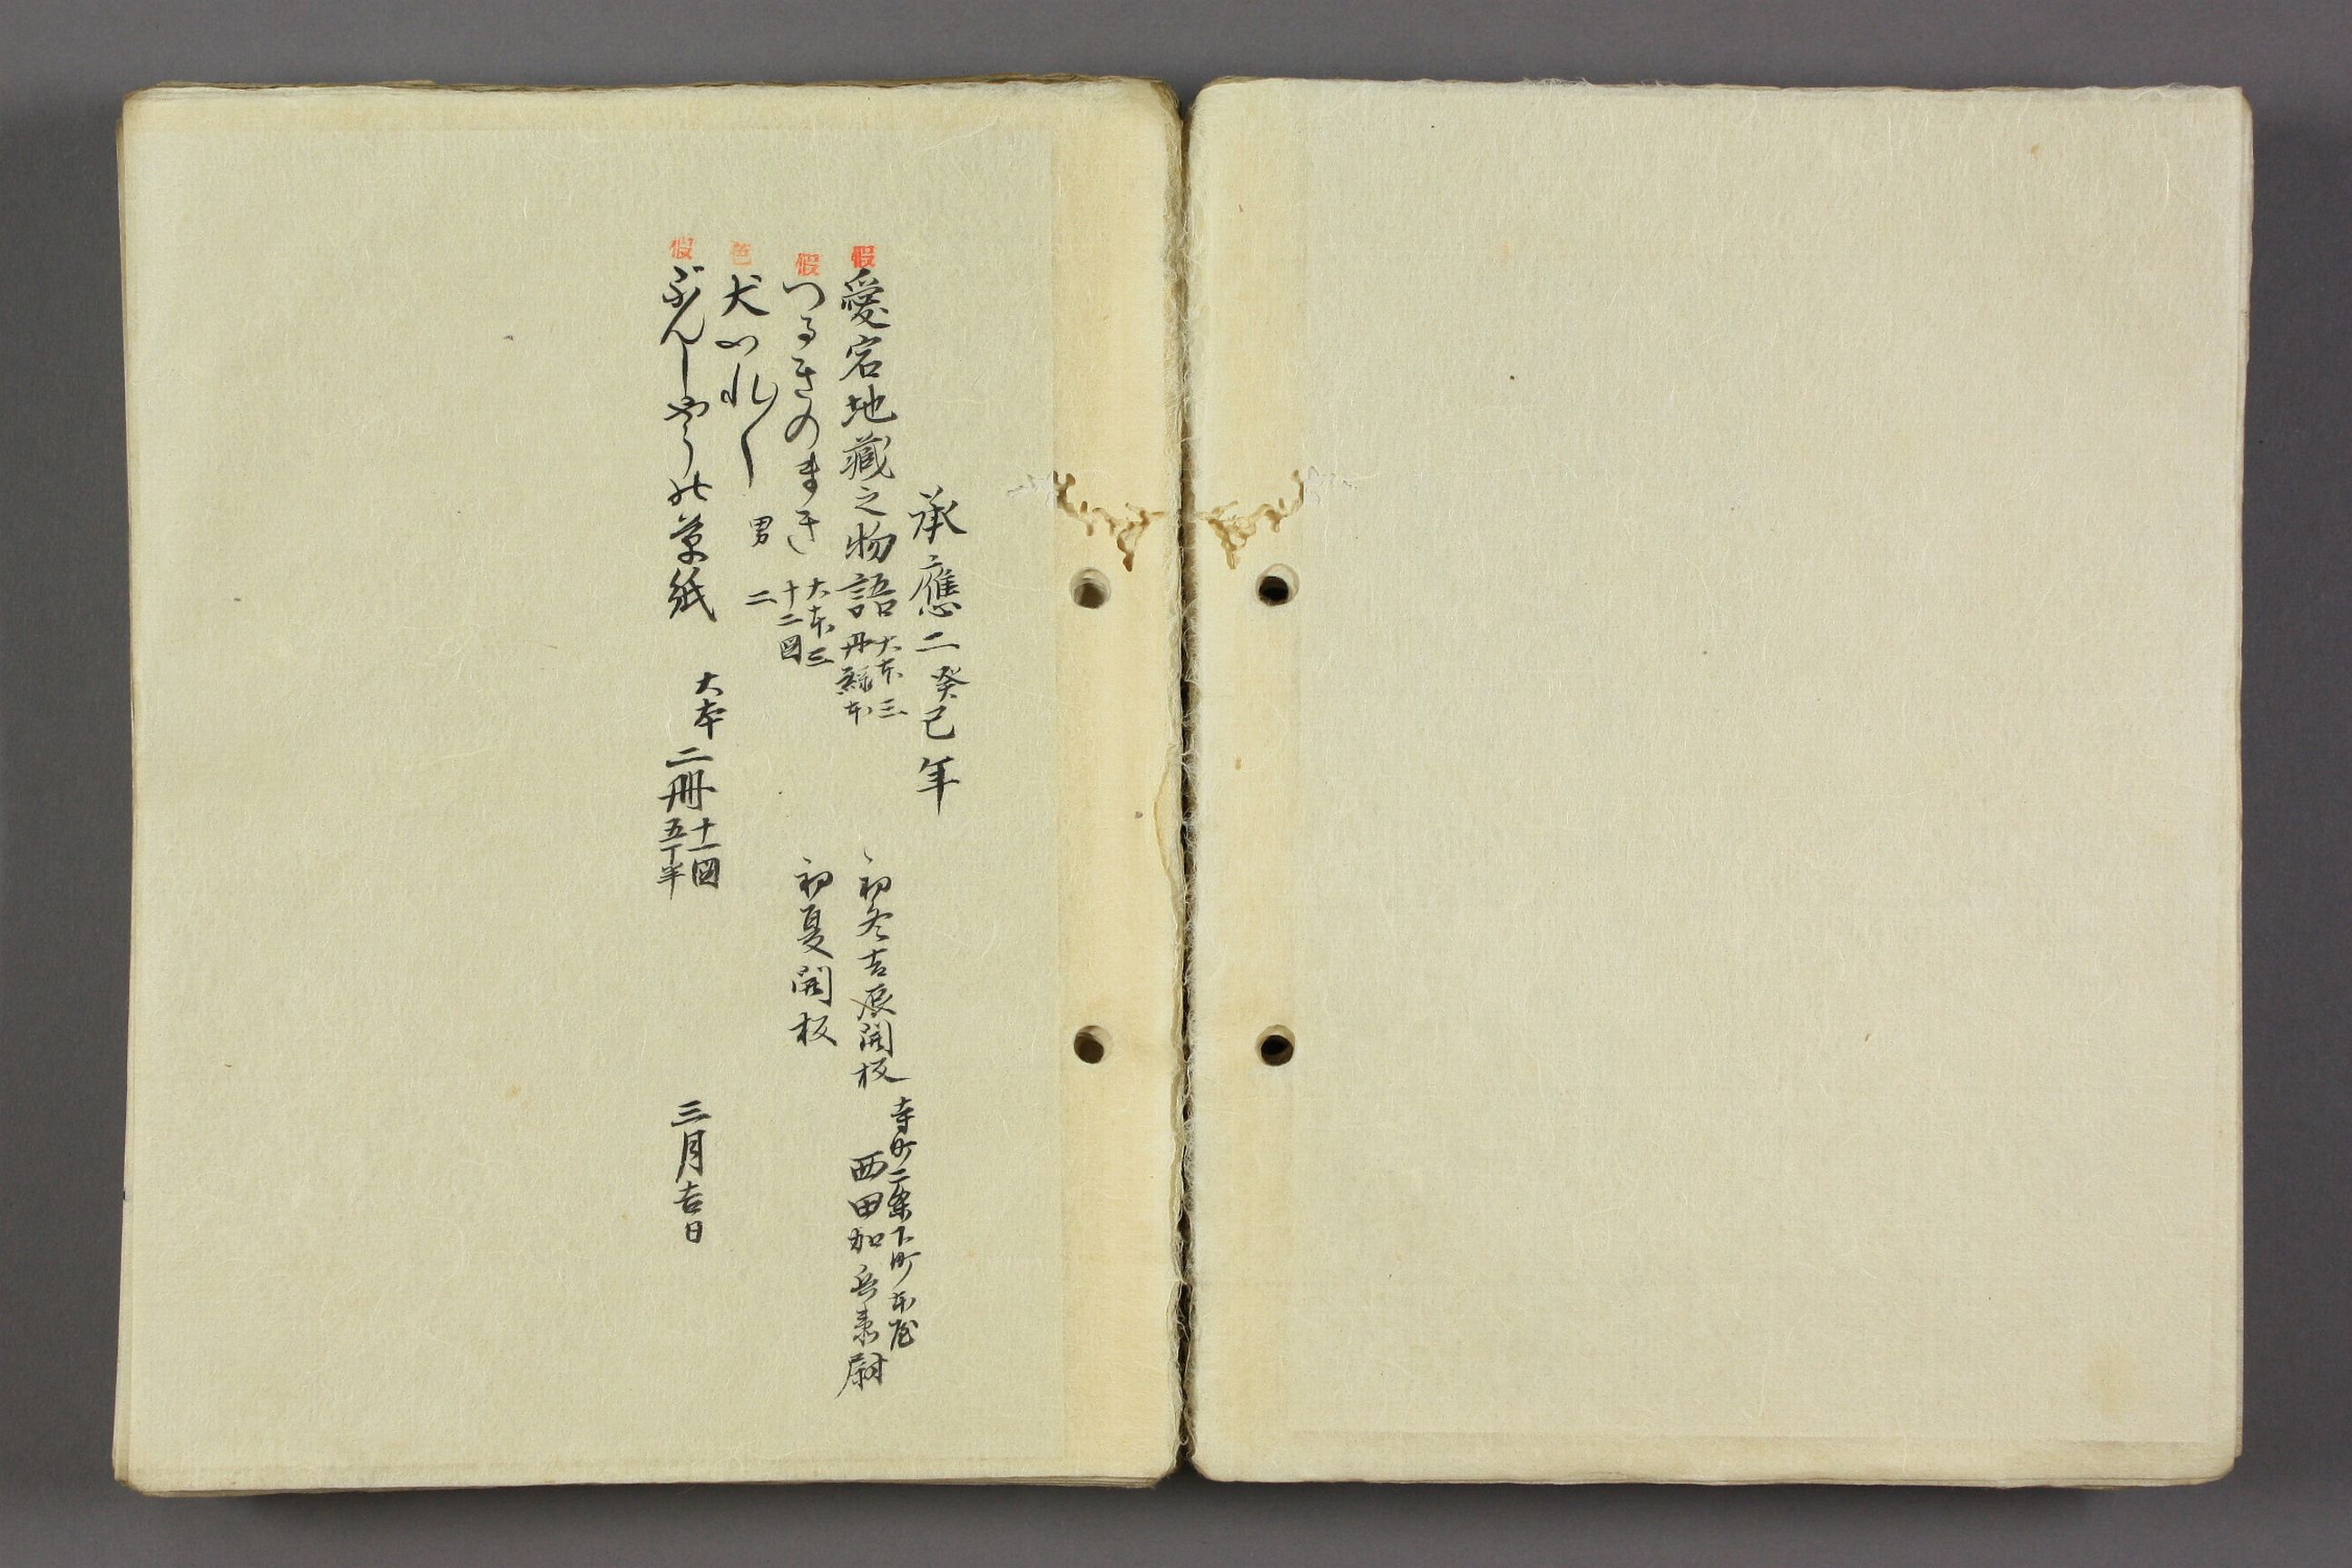 承應二癸巳年
假
愛宕地藏之物語
大本三
丹緑本
初冬吉辰開板
寺町二条下町本屋
西田加兵衛尉
假
つるきのまき
大本三
十二図
初夏開板
色
犬つれ〳〵
男
二
假
ぶんしやうの草紙
大本二冊
十一図
五丁半
三月吉日